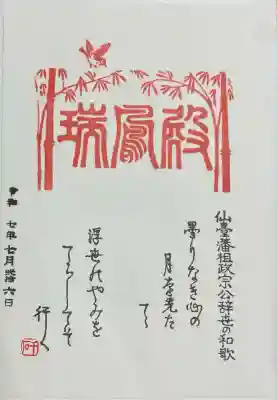 瑞鳳殿
仙臺藩祖政宗公辞世の和歌
曇りなき心の
月を先た
て
浮世のやみを
てらしてそ
行く
令和七年七月六日